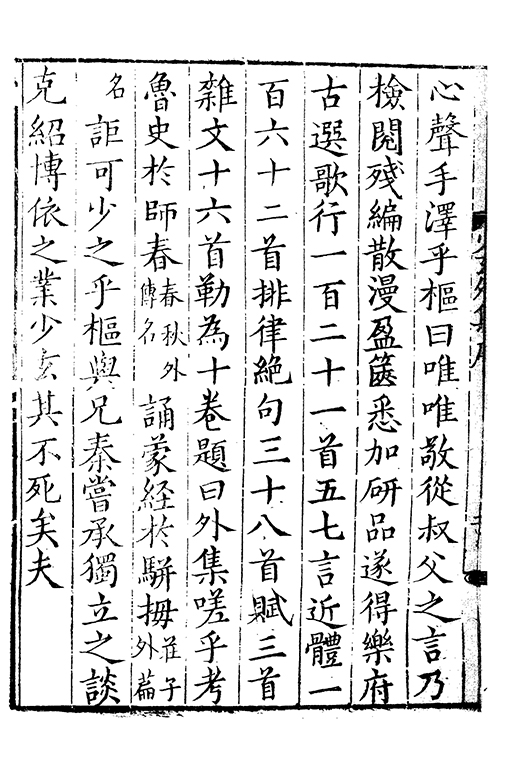 心聲手澤乎樞曰唯唯敬從叔父之言乃
檢閱殘編散漫盈篋悉加研品遂得樂府
古選歌行一百二十一首五七言近體一
百六十二首排律絕句三十八首賦三首
雜文十六首勒為十卷題曰外集嗟乎考
魯史於師春春秋外傳名誦蒙經於駢拇莊子外篇
名詎可少之乎樞與兄秦嘗承獨立之談
克紹博依之業少玄其不死矣夫